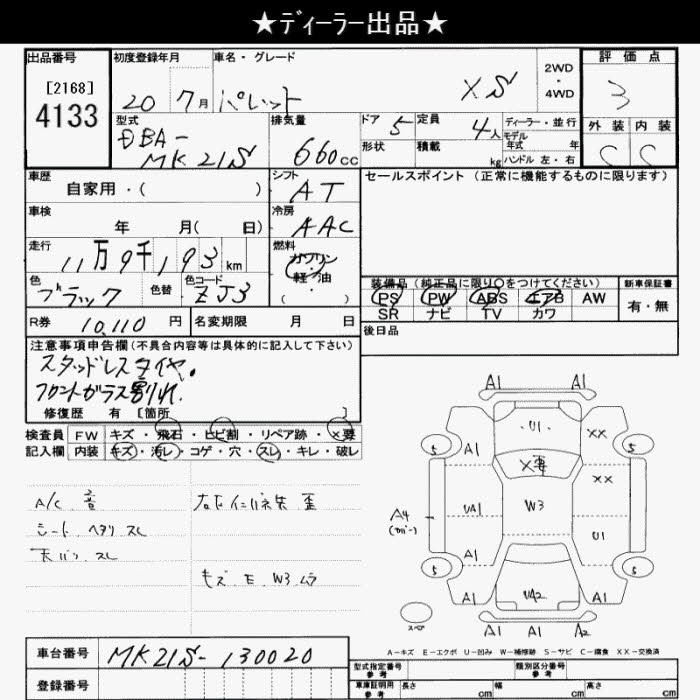 ★ディーラー出品★
出品番号
[2168]
4133
初度登録年月
20 7月
車名・グレード
パレット XS
2WD
・
4WD
評価点
3
外装 内装
C C
型式
DBA-
MK21S
排気量
660cc
ドア 5
形状
定員 4人
積載 kg
ディーラー・並行
モデル
年式 年
ハンドル 左・右
車歴
自家用・( )
シフト
AT
車検
年 月( 日)
冷房
AAC
走行
11万9千193km
燃料
ガソリン
軽・油
( )
色
ブラック
色替
色コード
ZJ3
セールスポイント (正常に機能するものに限ります)
装備品 (純正品に限り〇をつけてください)
PS PW ABS エアB AW
SR ナビ TV カワ
新車保証書
有・無
R券 10,110 円
名変期限 月 日
後日品
注意事項申告欄 (不具合内容等は具体的に記入して下さい)
スタッドレスタイヤ。
フロントガラス割れ。
修復歴 有 [箇所 ]
検査員 FW キズ・飛石・ヒビ割・リペア跡・×要
記入欄 内装 キズ・汚レ・コゲ・穴・スレ・キレ・破レ
A/C 音
シート ヘタリ スレ
キズ E W3 ムラ
A1 A1
U1
A1
XX
×要
XX
A4
(カバー)
UA1
W3
U1
A1
UA2
A1 A1
A1 A1 A2
5 5
5 5
スペア
A-キズ E-エクボ U-凹み W-補修跡 S-サビ C-腐食 XX-交換済
車台番号 MK21S-130020
登録番号
型式指定番号
参考
類別区分番号
参考
車庫証明用
参考
長さ cm 幅 cm 高さ cm